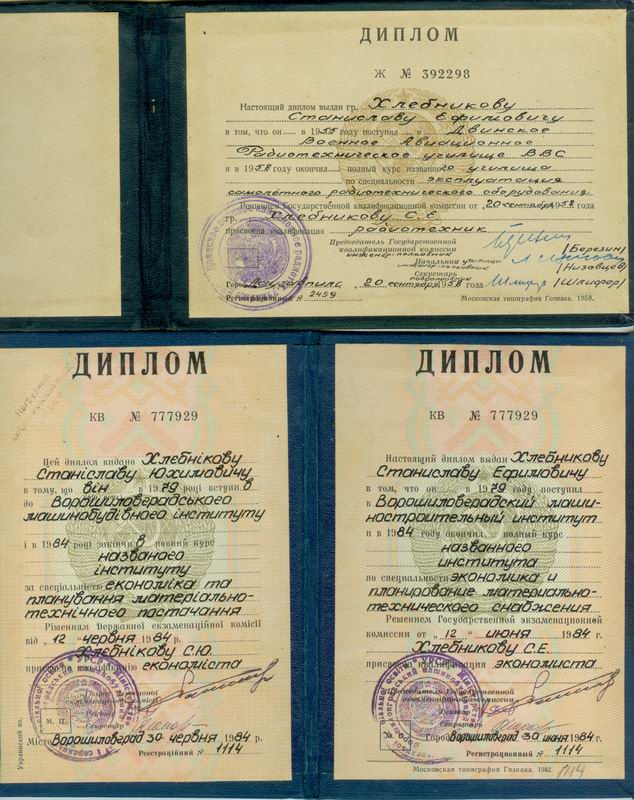 ДИПЛОМ
Ж № 392298
Настоящий диплом выдан гр. Хлебникову
Станиславу Ефимовичу
в том, что он в 1955 году поступил в Двинское
Военное Авиационное
Радиотехническое училище ВВС
и в 1958 году окончил полный курс названного училища
по специальности эксплуатация
самолетного радиотехнического оборудования
Решением Государственной квалификационной комиссии от „20 сентября 1958
гр. Хлебникову С.Е.
присвоена квалификация радиотехник
Председатель Государственной
квалификационной комиссии
инженер-полковник (Березин)
Начальник училища
инженер-полковник (Низовцев)
Секретарь
подполковник (Шлифер)
Город Даугавпилс 20 сентября 1958 года
Регистрационный № 2459
Московская типография Гознака. 1958.
ДИПЛОМ
КВ № 777929
Цей диплом видано Хлебнікову
Станіславу Юхимовичу
в тому, що він в 1979 році вступив
до Ворошиловградського
машинобудівного інституту
і в 1984 році закінчив повний курс
названого
інституту
за спеціальністю економіка та
планування матеріально-
технічного постачання
Рішенням Державної екзаменаційної комісії
від „12" червня 1984 р.
Хлебнікову С.Ю.
присвоєно кваліфікацію економіста
Ректор
Секретар
М. П.
Місто Ворошиловград 30 червня 1984 р.
Реєстраційний № 1114
Украинский яз.
ДИПЛОМ
КВ № 777929
Настоящий диплом выдан Хлебникову
Станиславу Ефимовичу
в том, что он в 1979 году поступил
в Ворошиловградский маши-
ностроительный институт
и в 1984 году окончил полный курс
названного
института
по специальности экономика и
планирование материально-
технического снабжения
Решением Государственной экзаменационной
комиссии от „12" июня 1984 г.
Хлебникову С.Е.
присвоена квалификация экономиста
Председатель Государственной
экзаменационной комиссии
Ректор
Секретарь
Город Ворошиловград 30 июня 1984 г.
Регистрационный № 1114
Московская типография Гознака. 1982.